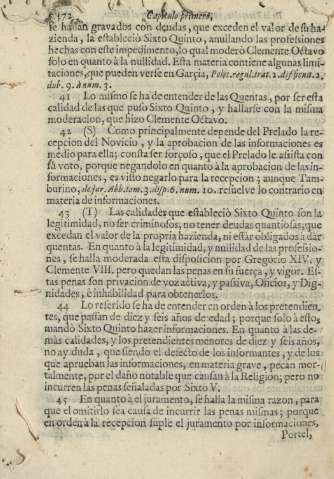 372 Capitulo primero,
se hallan gravados con deudas, que exceden el valor de su ha-
zienda, la estableciò Sixto Quinto, anullando las profesiones
hechas con este impedimento, lo qual moderò Clemente Octavo
solo en quanto à la nullidad. Esta materia contiene algunas limi-
taciones, que pueden verse en Garçia, Polit. regul. trat. 2. dif 2.
dub. 9. à num. 3.
41 Lo mismo se ha de entender de las Quentas, por ser esta
calidad de las que puso Sixto Quinto, y hallarse con la misma
moderacion, que hizo Clemente Octavo.
42 (S) Como principalmente depende del Prelado la re-
cepcion del Novicio, y la aprobacion de las informaciones es
medio para ella; consta ser forçoso, que el Prelado le assista con
su voto, porque negandole en quanto à la aprobacion de las in-
formaciones, es visto negarlo para la recepcion; aunque Tam-
burino, de jur. Abb. tom. 3. disp. 6. num. 10. resuelve lo contrario en
materia de informaciones.
43 (T) Las calidades que estableciò Sixto Quinto son la
legitimidad, no ser criminosos, no tener deudas quantiosas, que
excedan el valor de la propria hazienda, ni estàr obligados à dàr
quentas. En quanto à la legitimidad, y nullidad de las profesio-
nes, se halla moderada esta disposicion por Gregorio XIV. y
Clemente VIII. pero quedan las penas en su fuerça, y vigor. Es-
tas penas son privacion de voz activa, y passiva, Oficios, y Dig-
nidades, è inhabilidad para obtenerlos.
44 Lo referido se ha de entender en orden à los pretendien-
tes, que passan de diez y seis años de edad; porque solo à estos
mandò Sixto Quinto hazer informaciones. En quanto à las de-
màs calidades, y los pretendientes menores de diez y seis años,
no ay duda, que siendo el defecto de los informantes, y de los
que aprueban las informaciones, en materia grave, pecàn mor-
talmente, por el daño notable que causan à la Religion; pero no
incurren las penas señaladas por Sixto V.
45 En quanto à el juramento, se halla la misma razon, para
que el omitirlo sea causa de incurrir las penas mismas; porque
en orden à la recepcion suple el juramento por informaciones,
Portel,